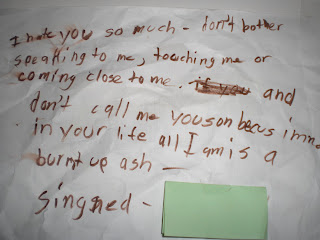 I hate you so much - don't bother
speaking to me, touching me or
coming close to me. if you and
don't call me youson becus imno
in your life all I am is a
burnt up ash -
singned -